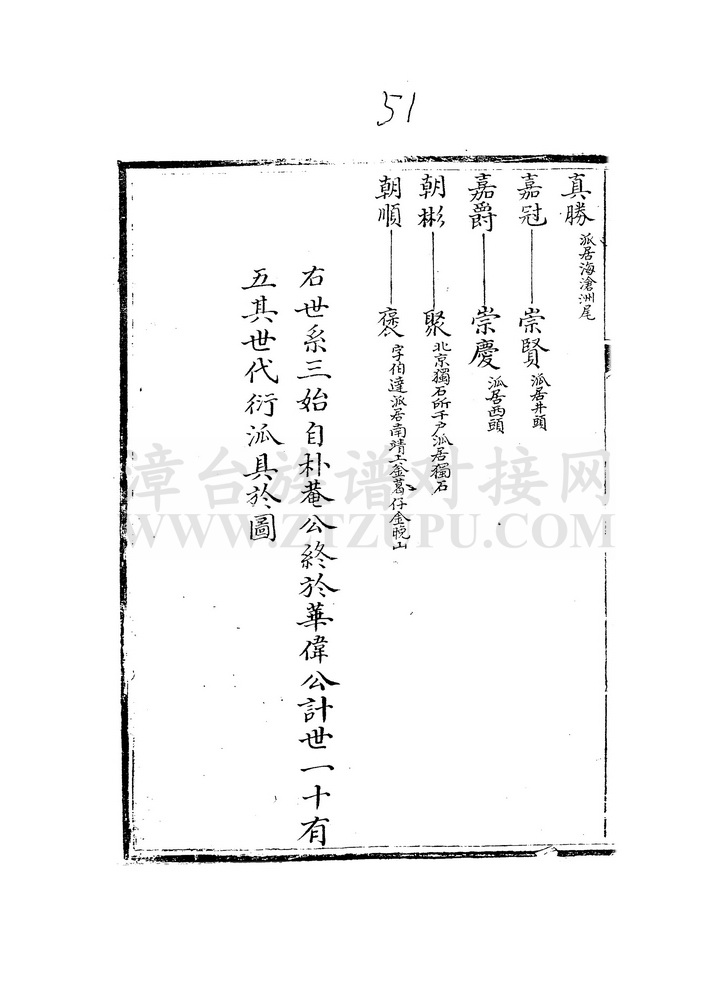 51
真勝 派居海滄洲尾
嘉冠 崇賢 派居井頭
嘉爵 崇慶 派居西頭
朝彬 聚 北京獨石所千戶派居獨石
朝順 褒 字伯達派居南靖上金葛仔金晚山
右世系三始自朴菴公終於華偉公計世一十有
五其世代衍派具於圖
漳台族谱对接网
WWW.ZTZUPU.COM